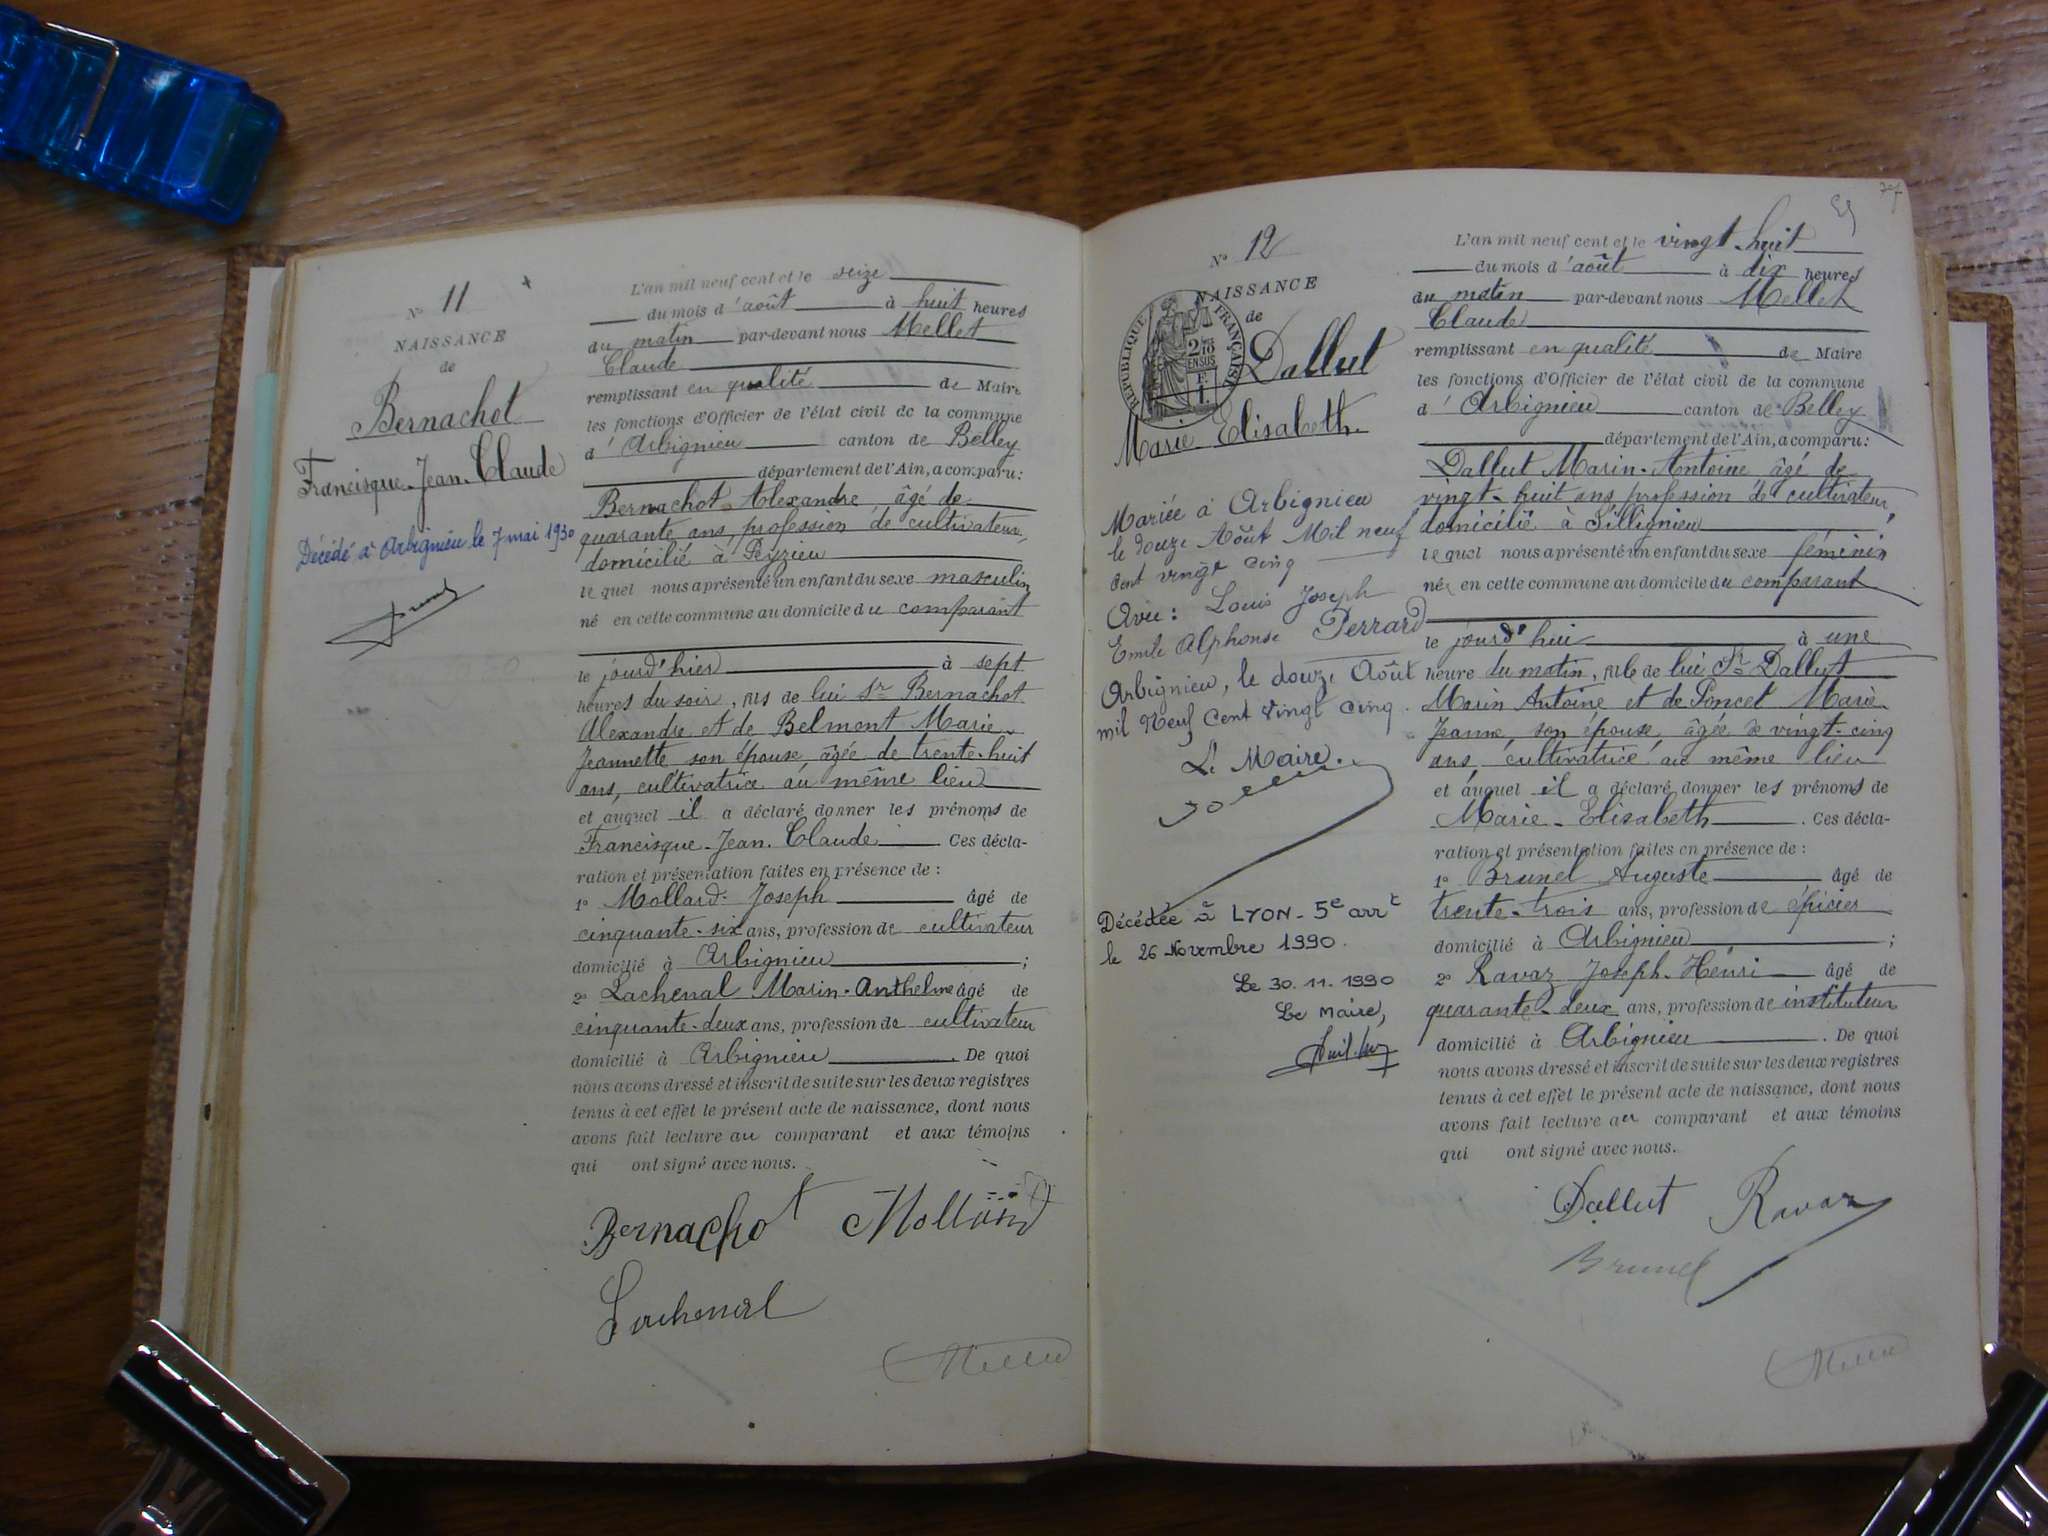 N° 11
NAISSANCE
de
Bernachot
Francisque-Jean-Claude
Décédé à Arbignieu le 7 mai 1930
L'an mil neuf cent et le seize
du mois d'août à huit heures
du matin par-devant nous Mellet
Claude
remplissant en qualité de Maire
les fonctions d'Officier de l'état civil de la commune
d'Arbignieu canton de Belley
département de l'Ain, a comparu:
Bernachot Alexandre, âgé de
quarante ans, profession de cultivateur,
domicilié à Peyzieu
lequel nous a présenté un enfant du sexe masculin
né en cette commune au domicile du comparant
le jourd'hier à sept
heures du soir, fils de lui Sr Bernachot
Alexandre et de Belmont Marie-
Jeannette son épouse, âgée de trente-huit
ans, cultivatrice au même lieu
et auquel il a déclaré donner les prénoms de
Francisque-Jean-Claude Ces décla-
ration et présentation faites en présence de :
1° Mollard Joseph âgé de
cinquante-six ans, profession de cultivateur
domicilié à Arbignieu ;
2° Lachenal Marin-Anthelme âgé de
cinquante-deux ans, profession de cultivateur
domicilié à Arbignieu . De quoi
nous avons dressé et inscrit de suite sur les deux registres
tenus à cet effet le présent acte de naissance, dont nous
avons fait lecture au comparant et aux témoins
qui ont signé avec nous.
Bernachot Mollard
Lachenal
Mellet
N° 12
NAISSANCE
de
RÉPUBLIQUE FRANÇAISE
Dallut
Marie Elisabeth.
Mariée à Arbignieu
le douze Août Mil neuf
cent vingt cinq
Avec : Louis Joseph
Emile Alphonse Perrard
Arbignieu, le douze Août
mil Neuf Cent Vingt Cinq.
Le Maire.
Décédée à LYON - 5e arrt
le 26 Novembre 1990.
Le 30.11.1990
Le Maire,
L'an mil neuf cent et le vingt-huit
du mois d'août à dix heures
du matin par-devant nous Mellet
Claude
remplissant en qualité de Maire
les fonctions d'Officier de l'état civil de la commune
d'Arbignieu canton de Belley
département de l'Ain, a comparu:
Dallut Marin-Antoine âgé de
vingt-huit ans, profession de cultivateur,
domicilié à Sillignieu
lequel nous a présenté un enfant du sexe féminin
née en cette commune au domicile du comparant
le jourd'hui à une
heure du matin, fille de lui Sr Dallut
Marin Antoine et de Poncet Marie
Jeanne, son épouse, âgée de vingt-cinq
ans, cultivatrice au même lieu
et auquel il a déclaré donner les prénoms de
Marie-Elisabeth . Ces décla-
ration et présentation faites en présence de :
1° Brunel Auguste âgé de
trente-trois ans, profession de épicier
domicilié à Arbignieu ;
2° Ravaz Joseph-Henri âgé de
quarante-deux ans, profession de instituteur
domicilié à Arbignieu . De quoi
nous avons dressé et inscrit de suite sur les deux registres
tenus à cet effet le présent acte de naissance, dont nous
avons fait lecture au comparant et aux témoins
qui ont signé avec nous.
Dallut Ravaz
Brunel
Mellet